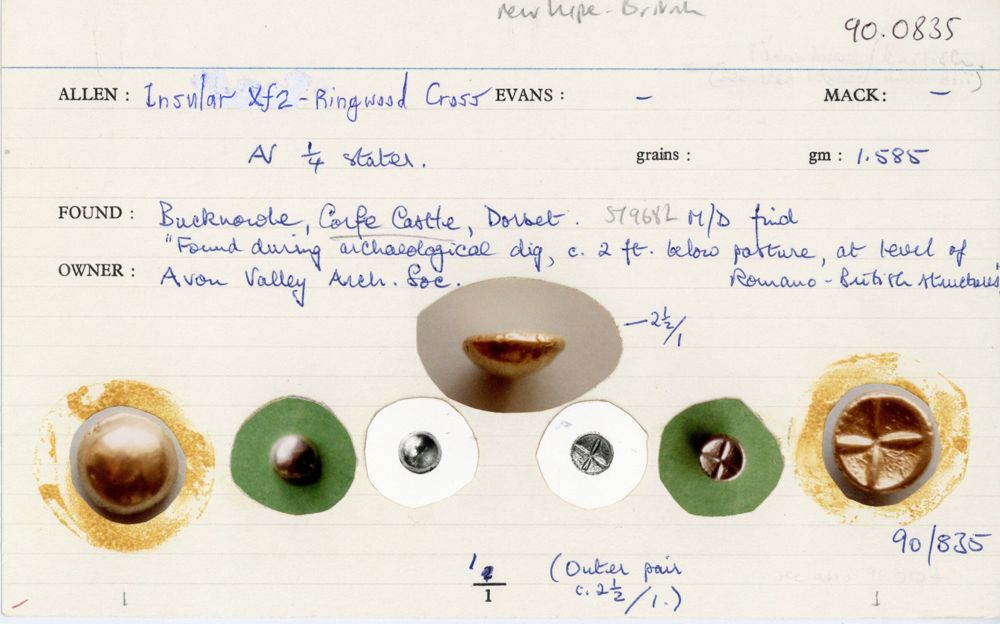 new type - British
90.0835
ALLEN : Insular Xf2 - Ringwood Cross EVANS : - MACK: -
AV 1/4 stater. grains : gm : 1.585
FOUND : Bucknowle, Corfe Castle, Dorset. SY9682 M/D find
"Found during archaeological dig, c. 2 ft. below pasture, at level of
OWNER : Avon Valley Arch. Soc. Romano-British structures"
2½/1
90/835
1/1 (Outer pair
c. 2½/1.)